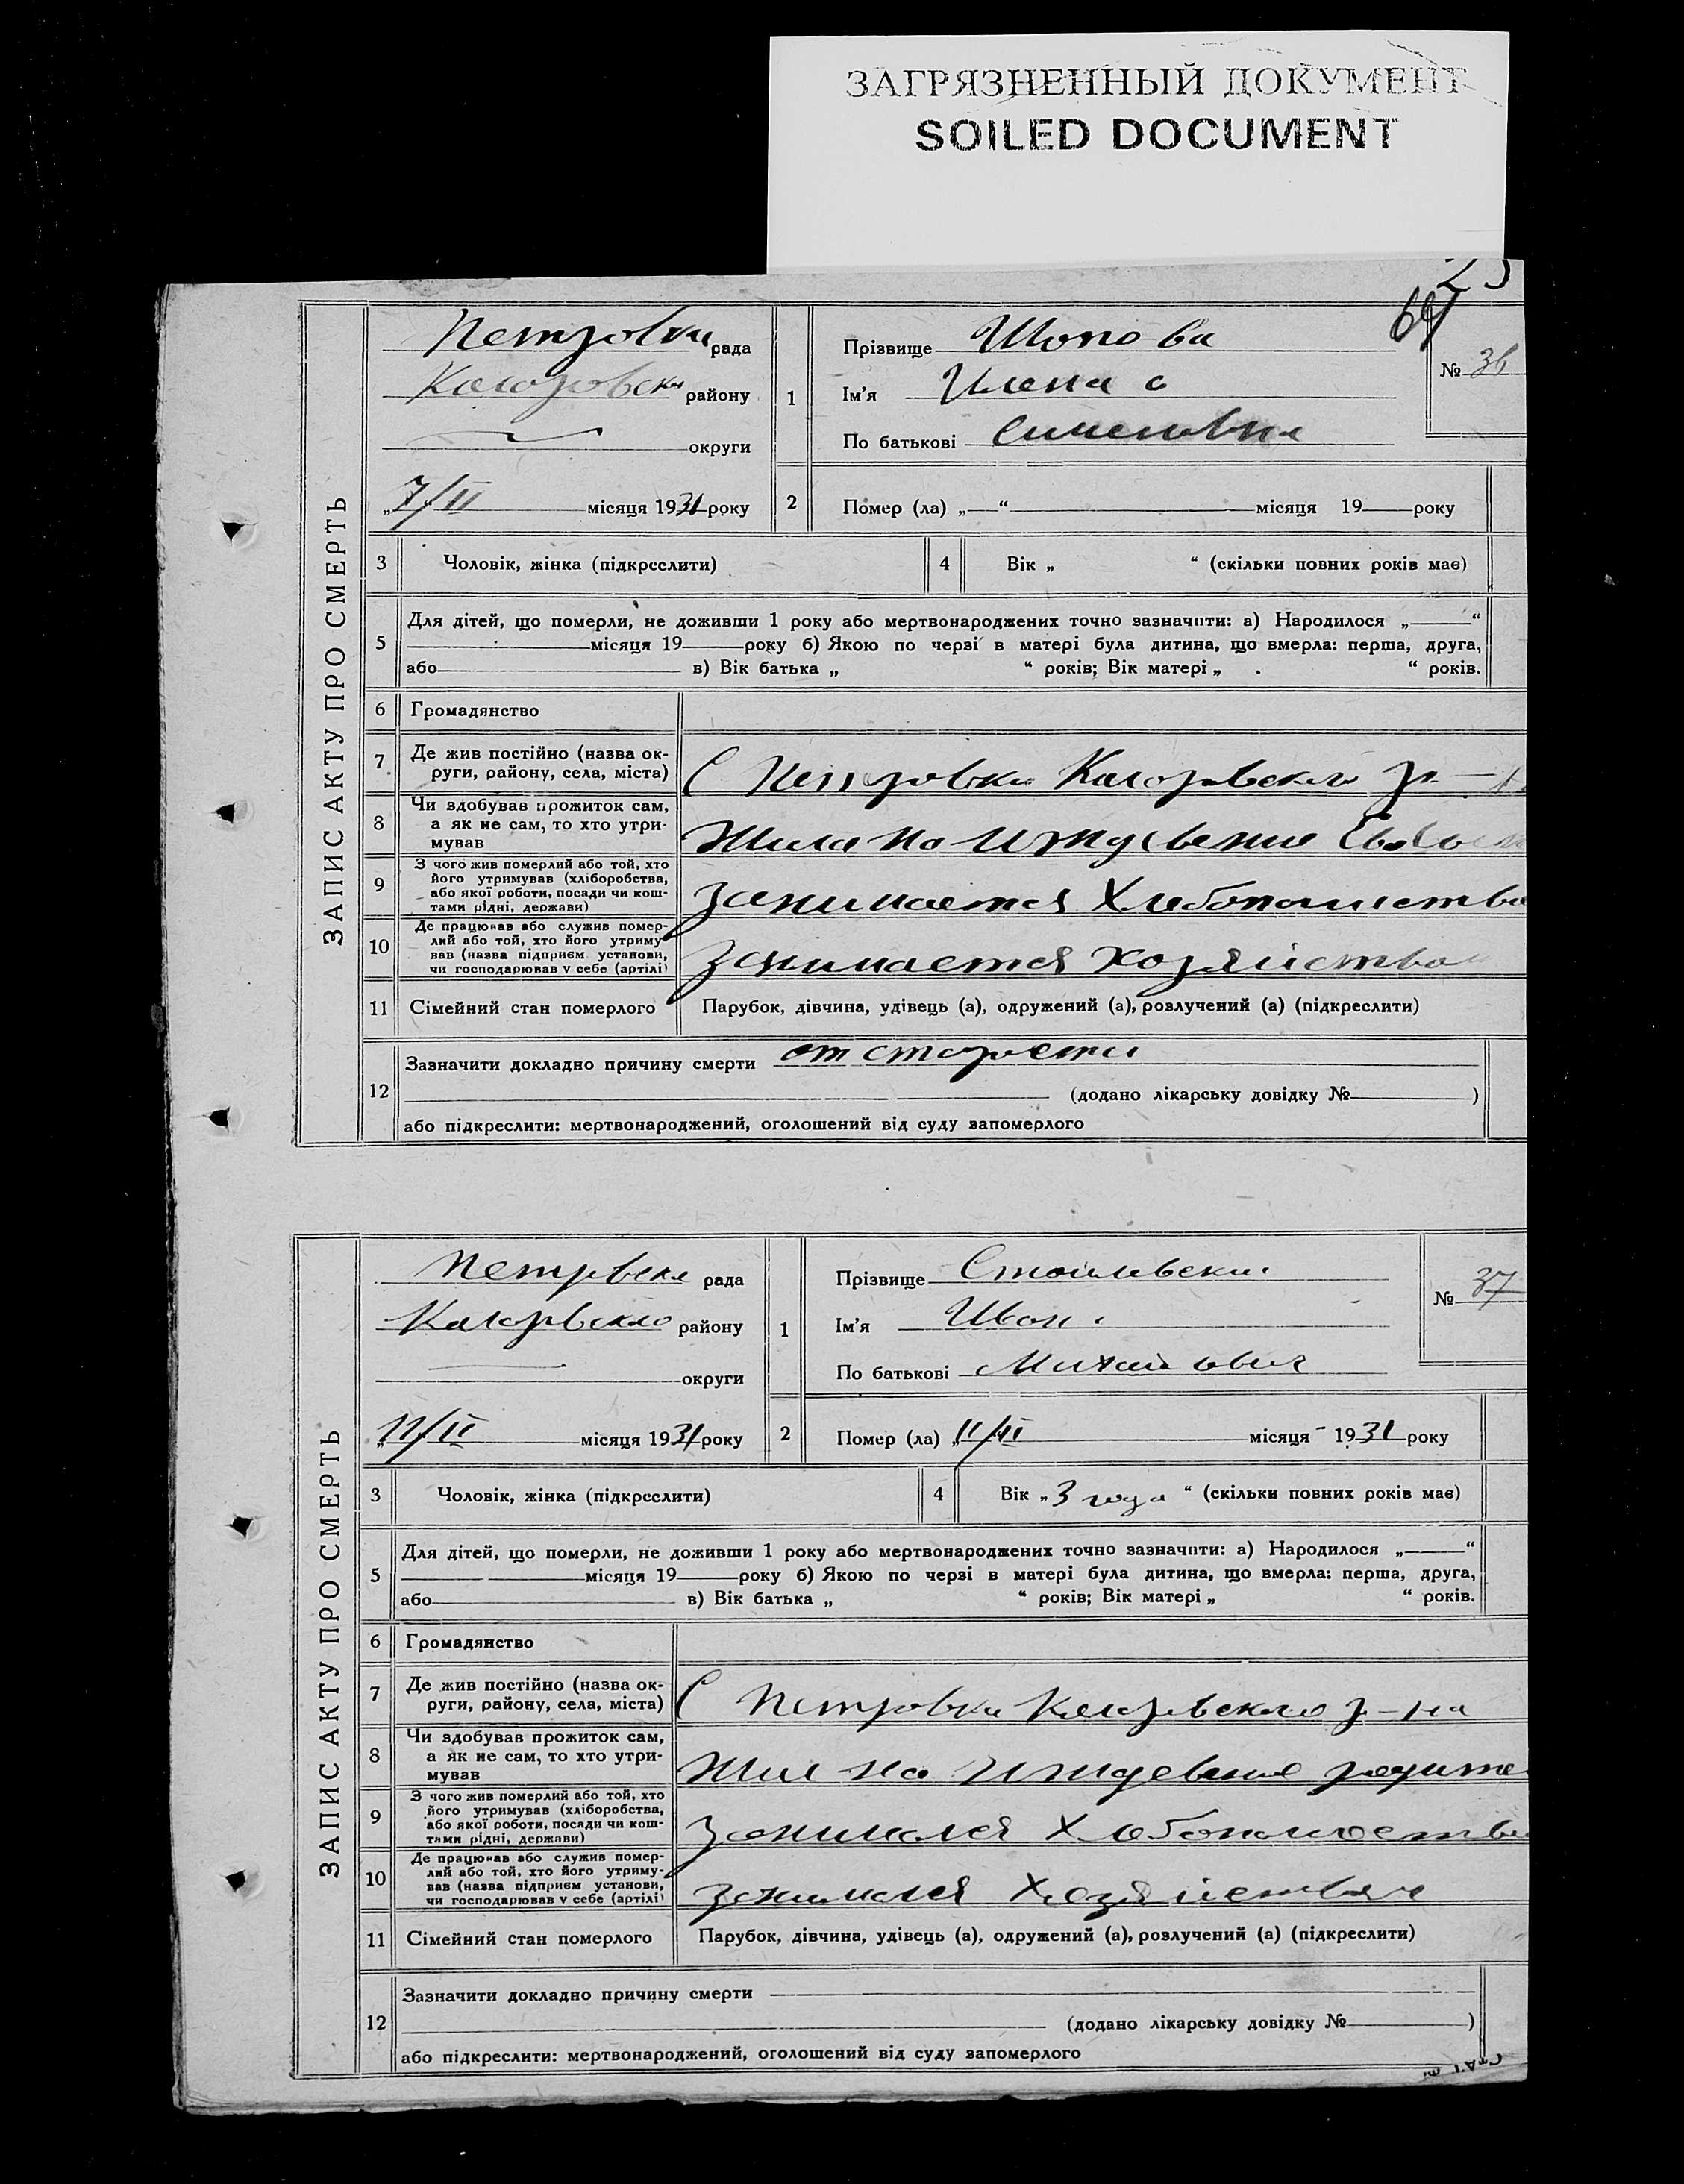 ЗАГРЯЗНЕННЫЙ ДОКУМЕНТ
SOILED DOCUMENT
ЗАПИС АКТУ ПРО СМЕРТЬ
Петровка рада
району
округи
„7/II місяця 1931 року
1
Прізвище
Ім'я
По батькові
№ 36
2 Помер (ла) „ “ місяця 19 року
3 Чоловік, жінка (підкреслити) 4 Вік „ “ (скільки повних років має)
5 Для дітей, що померли, не доживши 1 року або мертвонароджених точно зазначити: а) Народилося „ “
місяця 19 року б) Якою по черзі в матері була дитина, що вмерла: перша, друга,
або в) Вік батька „ “ років; Вік матері „ “ років.
6 Громадянство
7 Де жив постійно (назва ок-
руги, району, села, міста)
С Петровка
8 Чи здобував прожиток сам,
а як не сам, то хто утри-
мував
Жила на
9 З чого жив померлий або той, хто
його утримував (хліборобства,
або якої роботи, посади чи кош-
тами рідні, держави)
занимается
10 Де працював або служив помер-
лий або той, хто його утриму-
вав (назва підприєм. установи,
чи господарював у себе (артілі)
занимается
11 Сімейний стан померлого Парубок, дівчина, удівець (а), одружений (а), розлучений (а) (підкреслити)
12 Зазначити докладно причину смерти от старости
(додано лікарську довідку № )
або підкреслити: мертвонароджений, оголошений від суду запомерлого
ЗАПИС АКТУ ПРО СМЕРТЬ
рада
району
округи
„11/II місяця 1931 року
1
Прізвище
Ім'я Иван
По батькові
№ 37
2 Помер (ла) „11/III місяця 1931 року
3 Чоловік, жінка (підкреслити) 4 Вік „3 года “ (скільки повних років має)
5 Для дітей, що померли, не доживши 1 року або мертвонароджених точно зазначити: а) Народилося „ “
місяця 19 року б) Якою по черзі в матері була дитина, що вмерла: перша, друга,
або в) Вік батька „ “ років; Вік матері „ “ років.
6 Громадянство
7 Де жив постійно (назва ок-
руги, району, села, міста)
С Петровка р-на
8 Чи здобував прожиток сам,
а як не сам, то хто утри-
мував
Жил на
9 З чого жив померлий або той, хто
його утримував (хліборобства,
або якої роботи, посади чи кош-
тами рідні, держави)
занимался
10 Де працював або служив помер-
лий або той, хто його утриму-
вав (назва підприєм. установи,
чи господарював у себе (артілі)
занимался
11 Сімейний стан померлого Парубок, дівчина, удівець (а), одружений (а), розлучений (а) (підкреслити)
12 Зазначити докладно причину смерти
(додано лікарську довідку № )
або підкреслити: мертвонароджений, оголошений від суду запомерлого